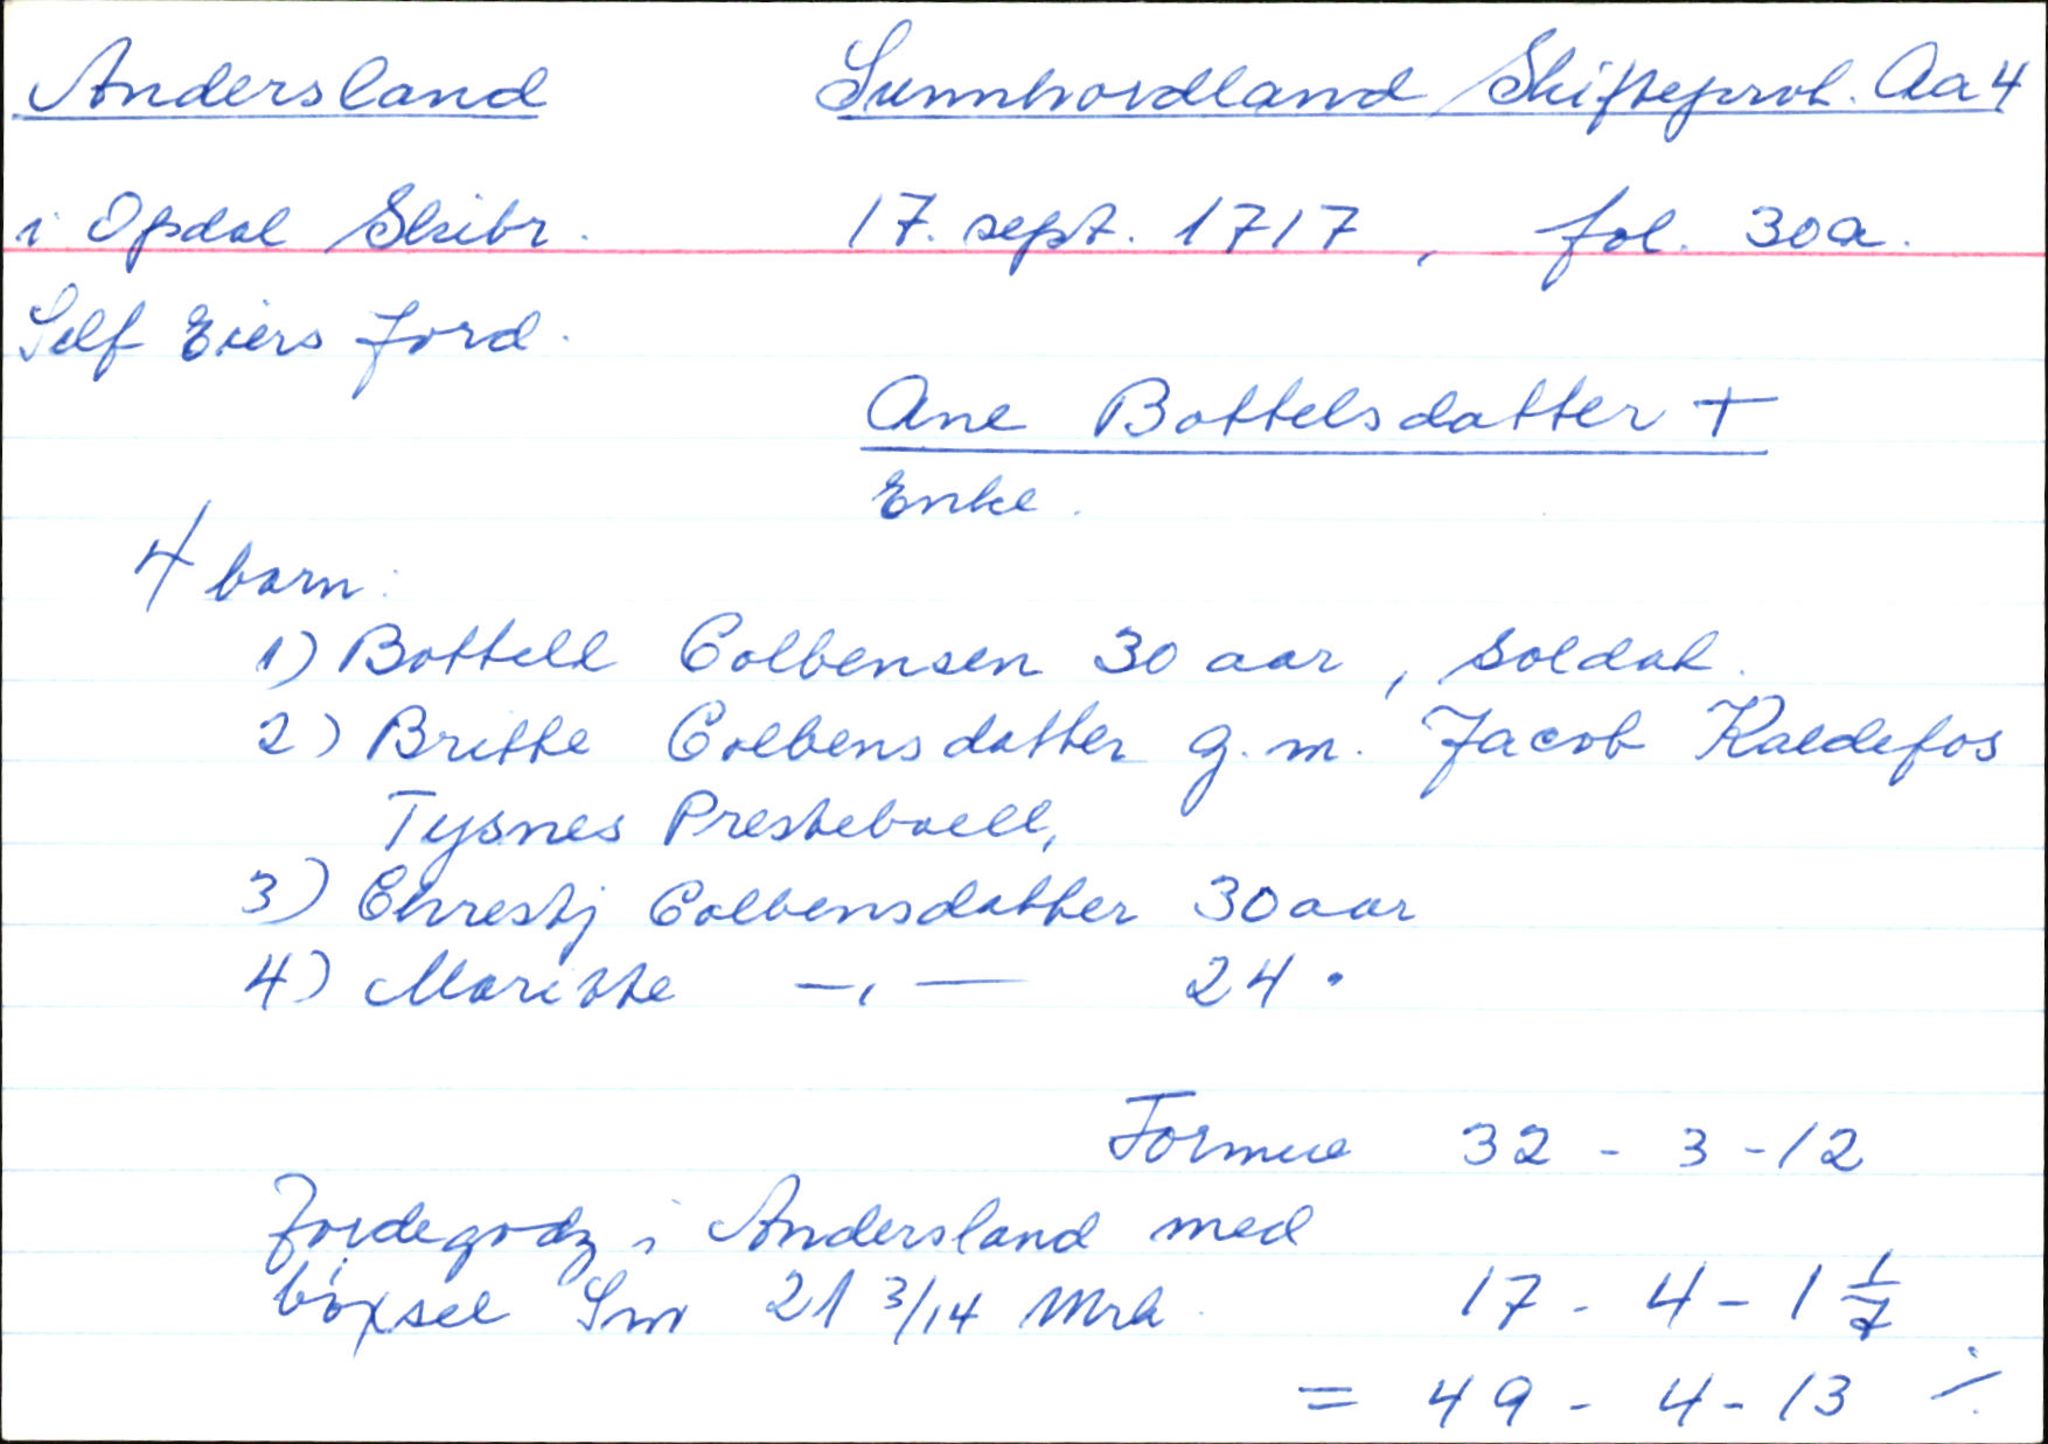 Andersland Sunnhordland Skifteprot. Aa 4
i Opdal Skibr. 17. sept. 1717, fol. 30a.
Self Eiers Jord.
Ane Bottelsdatter +
Enke.
4 barn:
1) Bottell Colbensen 30 aar, soldat.
2) Britte Colbensdatter g.m. Jacob Kaldefos
Tysnes Prestebaell,
3) Chrestj Colbensdatter 30 aar
4) Maritte —,— 24 "
Formue 32 - 3 - 12
Jordegodz i Andersland med
bøxsel Smr 21 3/14 Mrk. 17 - 4 - 1 1/7
= 49 - 4 - 13 ./.